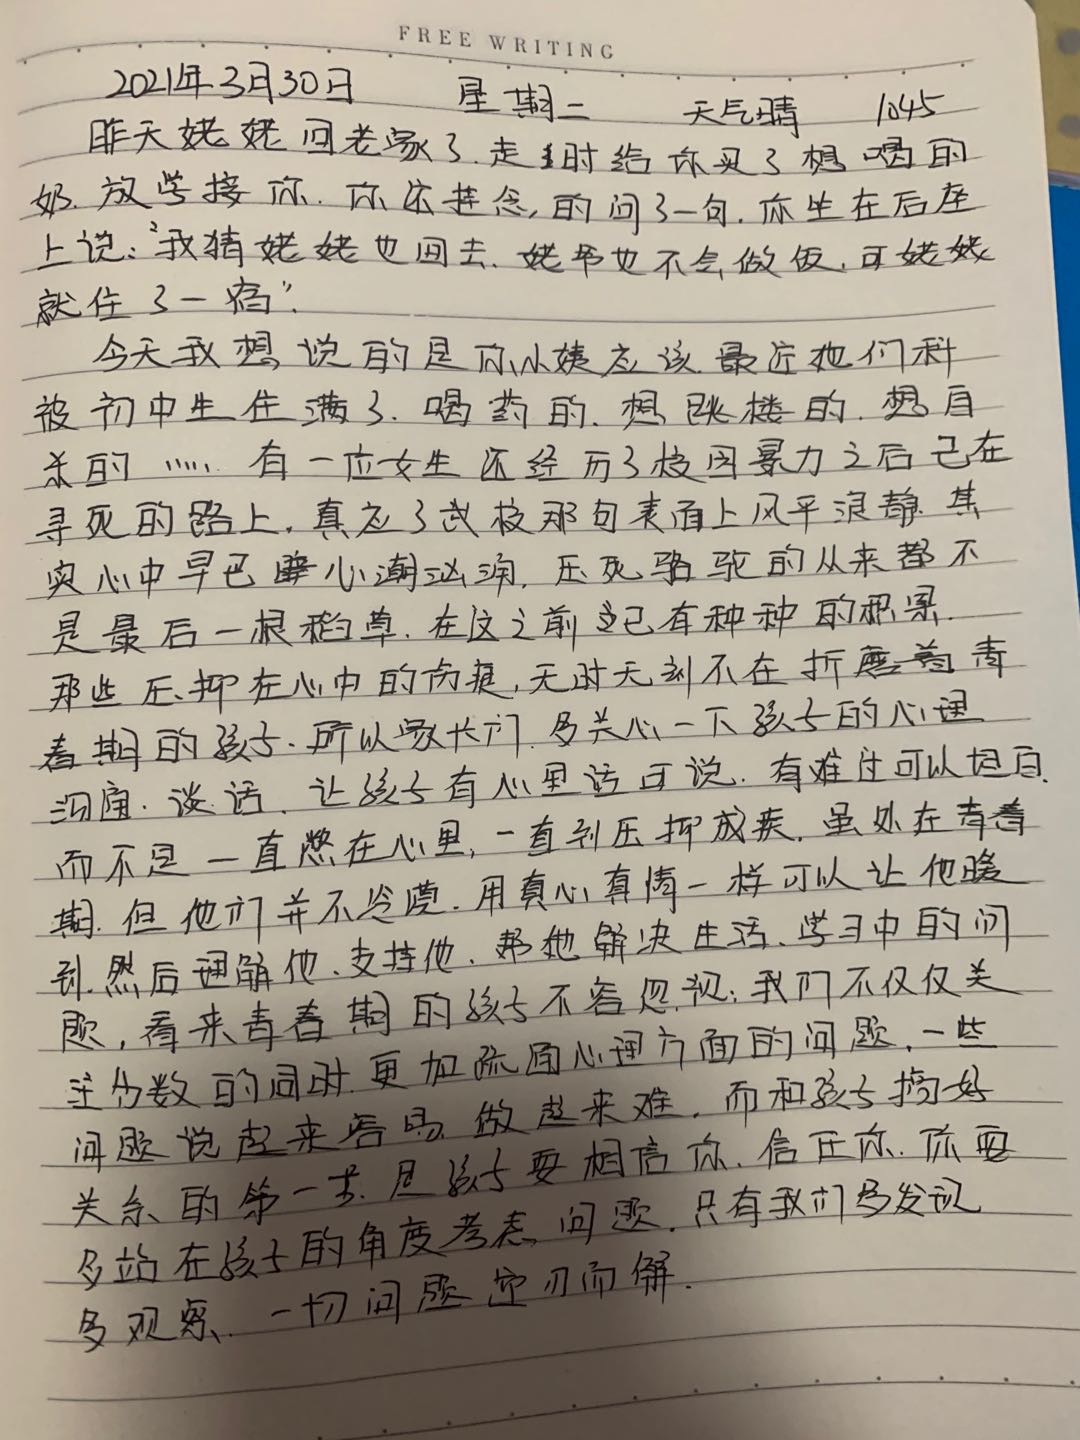 FREE WRITING
2021年3月30日 星期二 天气晴 1045
昨天姥姥回老家了.走时给你买了想喝的
奶.放学接你.你还挂念,的问了一句.你坐在后座
上说:"我猜姥姥也回去.姥爷也不会做饭.可姥姥
就住了一宿".
今天我想说的是你小姨应该.最近他们科
被初中生住满了.喝药的.想跳楼的.想自
杀的……有一位女生还经历了校园暴力之后已在
寻死的路上.真应了武校那句表面上风平浪静.其
实心中早已心潮汹涌.压死骆驼的从来都不
是最后一根稻草.在这之前已有种种的积累.
那些压抑在心中的伤痕,无时无刻不在折磨着青
春期的孩子.所以家长们.多关心一下孩子的心理
沟通.谈话.让孩子有心里话可说.有难过可以坦白.
而不是一直憋在心里,一直到压抑成疾.虽处在青春
期.但他们并不冷漠.用真心真情一样可以让他暖
到.然后理解他.支持他.帮他解决生活、学习中的问
题,看来青春期的孩子不容忽视:我们不仅仅关
注分数的同时.更加疏通心理方面的问题.一些
问题说起来容易.做起来难.而和孩子搞好
关系的第一步.是孩子要相信你.信任你.你要
多站在孩子的角度考虑问题.只有我们多发现
多观察.一切问题迎刃而解.